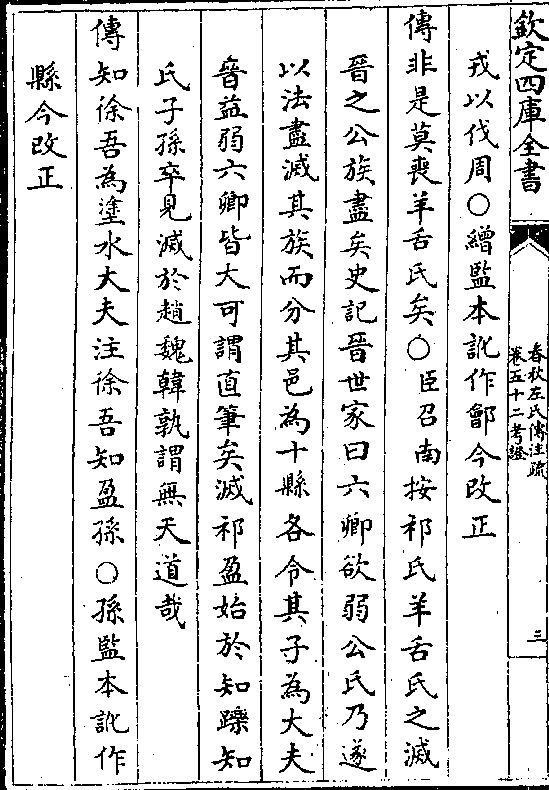 欽定四庫全書
春秋左氏傳注疏
卷五十二考證
三
戎以伐周○繒監本訛作鄫今改正
傳非是莫喪羊舌氏矣○臣召南按祁氏羊舌氏之滅
晉之公族盡矣史記晉世家曰六卿欲弱公氏乃遂
以法盡滅其族而分其邑為十縣各令其子為大夫
晉益弱六卿皆大可謂直筆矣滅祁盈始於知躒知
氏子孫卒見滅於趙魏韓孰謂無天道哉
傳知徐吾為塗水大夫注徐吾知盈孫○孫監本訛作
縣今改正